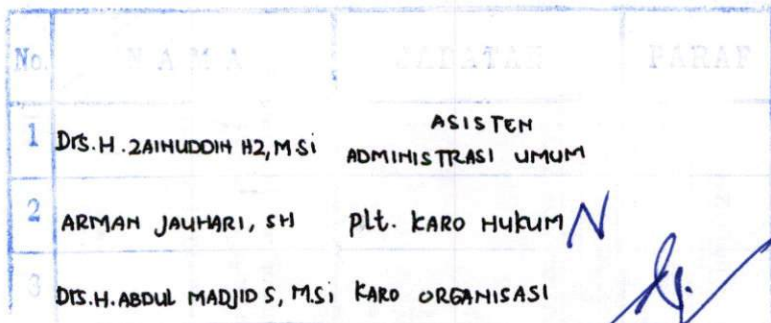 No. NAMA JABATAN PARAF
1 Drs. H. ZAINUDDIN HZ, M.Si ASISTEN
ADMINISTRASI UMUM
2 ARMAN JAUHARI, SH plt. KARO HUKUM
3 Drs. H. ABDUL MADJID S, M.Si KARO ORGANISASI